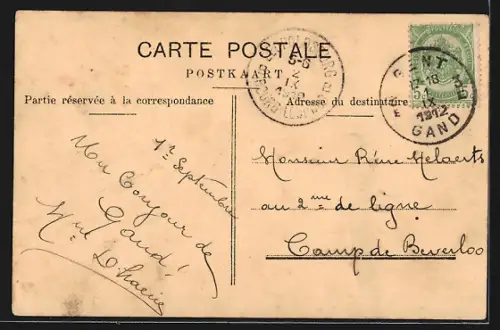 CARTE POSTALE
POSTKAART
Partie réservée à la correspondance
Adresse du destinataire
GENT
1912
GAND
5-6
2
IX
1r Septembre
Un bonjour de
Gand!
Monsieur Réne Melaerts
au 2me de ligne
Camp de Beverloo